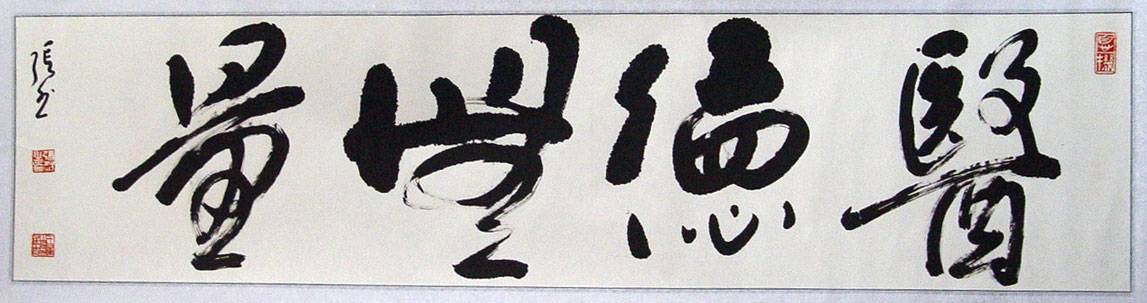 醫德無量
張書